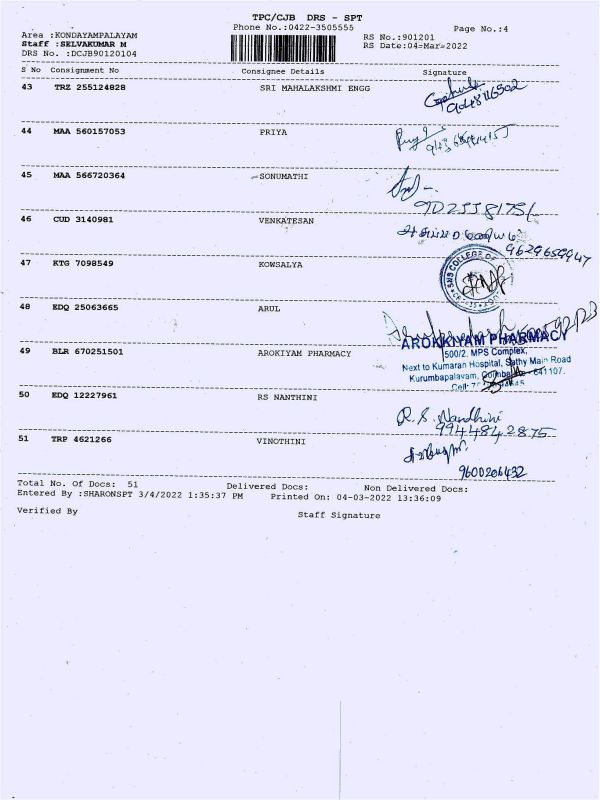 TPC/CJB DRS - SPT
Phone No.:0422-3505555
Page No.:4
Area :KONDAYAMPALAYAM
RS No.:901201
Staff :SELVAKUMAR M
RS Date:04-Mar-2022
DRS No. :DCJB90120104
S No Consignment No Consignee Details Signature
43 TRZ 255124828 SRI MAHALAKSHMI ENGG
44 MAA 560157053 PRIYA
45 MAA 566720364 SONUMATHI
46 CUD 3140981 VENKATESAN
9629659947
47 KTG 7098549 KOWSALYA
SNS COLLEGE OF
48 EDQ 25063665 ARUL
AROKKIYAM PHARMACY
500/2, MPS Complex,
49 BLR 670251501 AROKIYAM PHARMACY
Next to Kumaran Hospital, Sathy Main Road
Kurumbapalayam, 641107.
Cell:
50 EDQ 12227961 RS NANTHINI
R.S. Nandhini
9944842875
51 TRP 4621266 VINOTHINI
9600206432
Total No. Of Docs: 51 Delivered Docs: Non Delivered Docs:
Entered By :SHARONSPT 3/4/2022 1:35:37 PM Printed On: 04-03-2022 13:36:09
Verified By Staff Signature